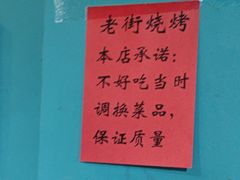 老街烧烤
本店承诺:
不好吃当时
调换菜品,
保证质量